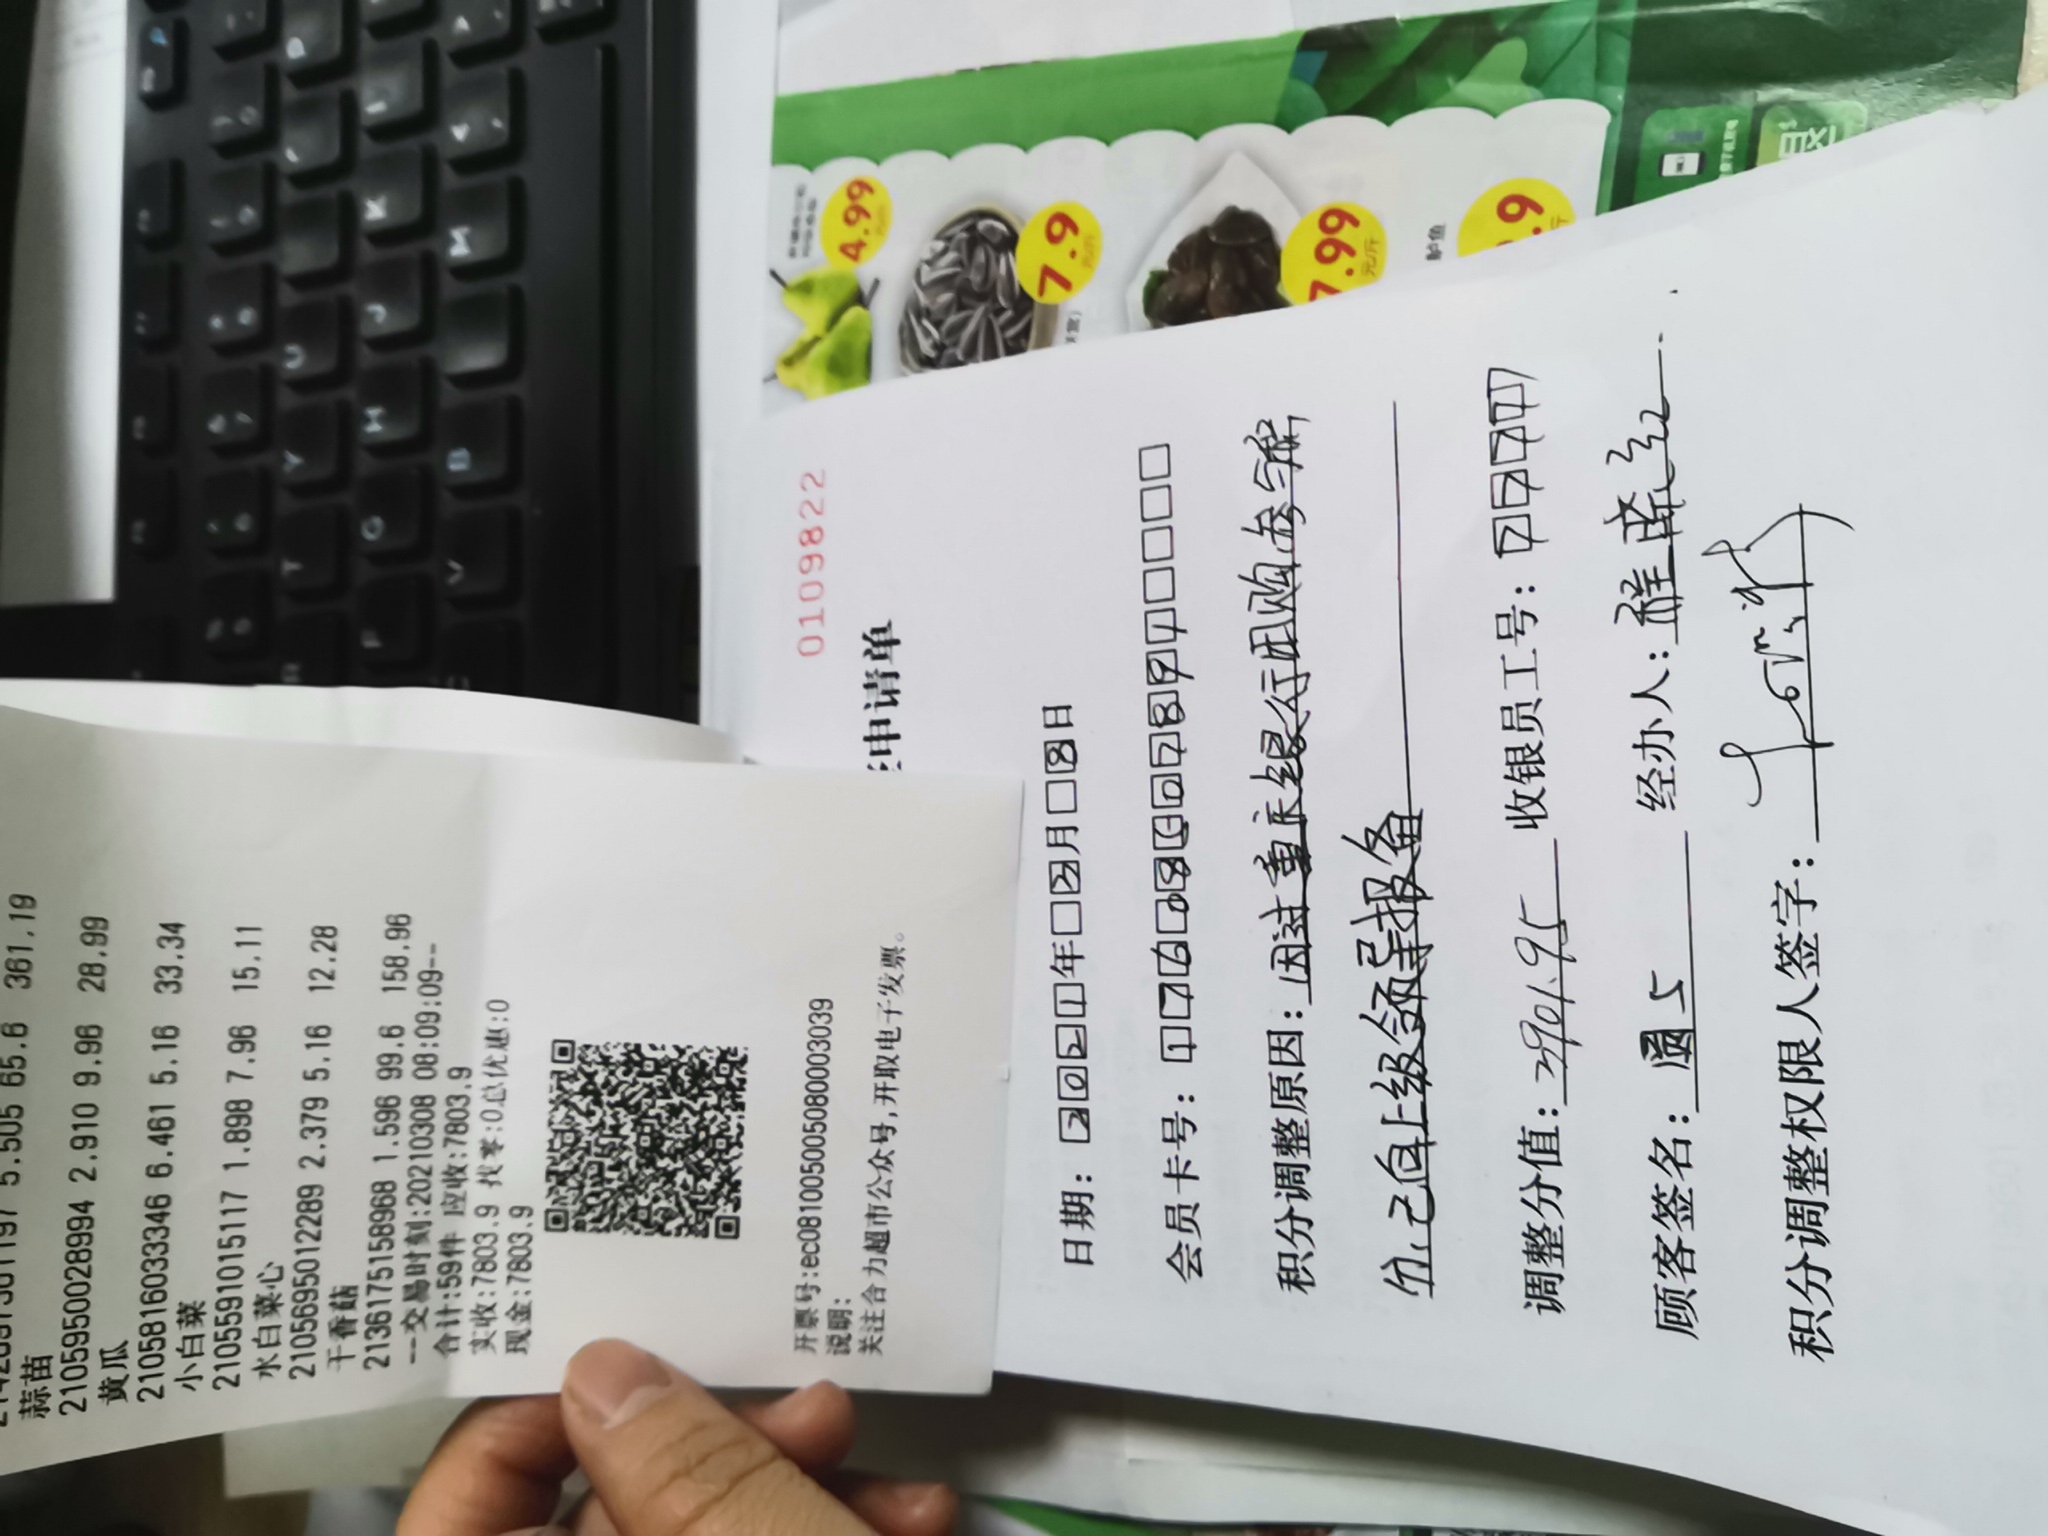 5.505 65.6 361.19
蒜苗
2105950028994 2.910 9.96 28.99
黄瓜
2105816033346 6.461 5.16 33.34
小白菜
2105591015117 1.898 7.96 15.11
水白菜心
2105695012289 2.379 5.16 12.28
干香菇
2136175158968 1.596 99.6 158.96
---交易时刻:20210308 08:09:09--
合计:59件 应收:7803.9
实收:7803.9 找零:0总优惠:0
现金:7803.9
开票号:ec081005005080003039
说明:
关注合力超市公众号,开取电子发票。
0109822
申请单
日期: 2021年3月8日
会员卡号:
积分调整原因: 因过重庆银行团购参与积
分,已向上级领导报备
调整分值: 3901.95 收银员工号: 7777
顾客签名: 周 经办人:
积分调整权限人签字:
4.99
7.9
元/斤
7.99
元/斤
鲈鱼
.9
元/斤